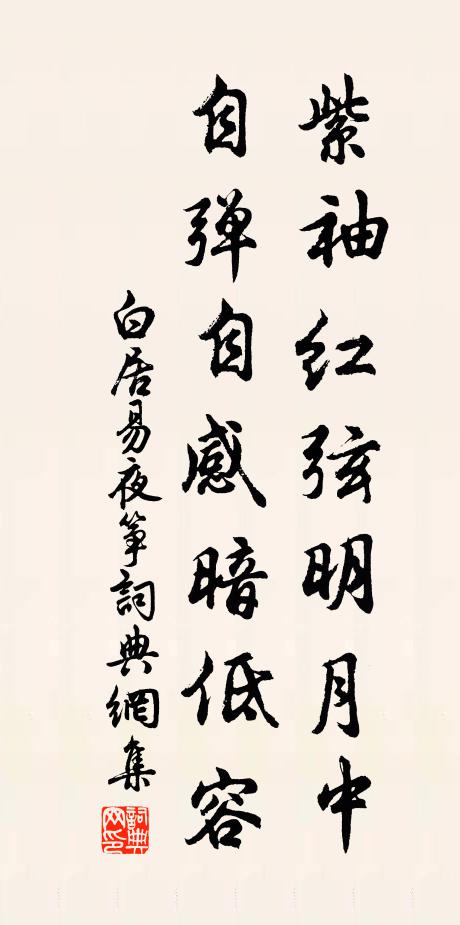 紫袖红弦明月中
自弹自感暗低容
白居易夜筝詞典網集
詞典网印